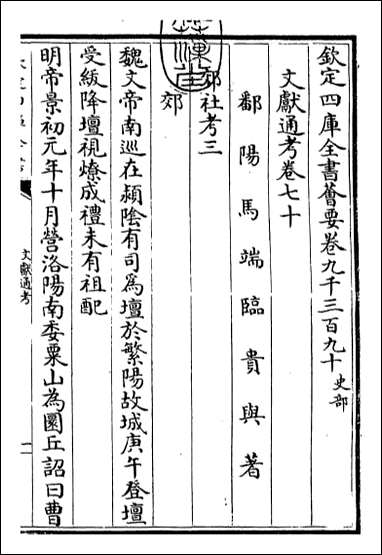 欽定四庫全書薈要卷九千三百九十 史部
文獻通考卷七十
鄱陽馬端臨貴與著
郊社考三
郊
魏文帝南巡在潁陰有司爲壇於繁陽故城庚午登壇
受紱降壇視燎成禮未有祖配
明帝景初元年十月營洛陽南委粟山為圜丘詔曰曹
文獻通考
一